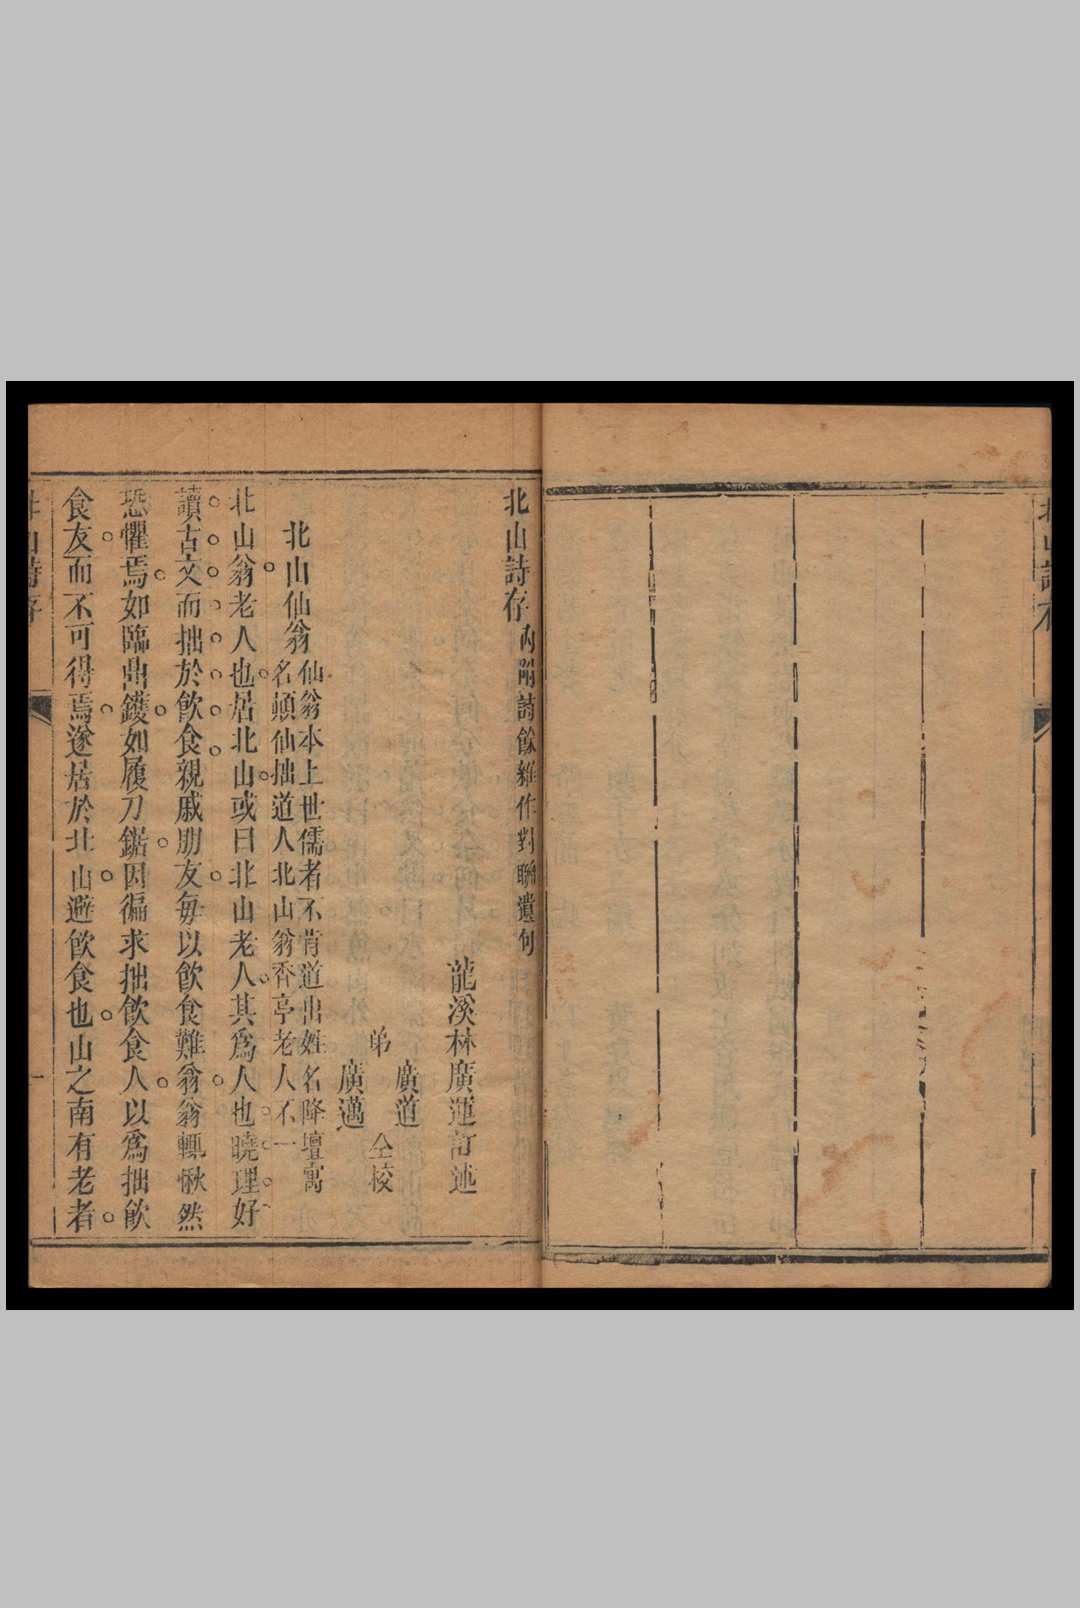 北山詩存
北山詩存內附詩餘雜作對聯遺句
龍溪林廣運訂述
弟
廣道
廣邁
仝校
北山仙翁
仙翁本上世儒者不肯道出姓名降壇寓
名顛仙拙道人北山翁香亭老人不一
北山翁老人也居北山或曰北山老人其為人也曉理好
讀古文而拙於飲食親戚朋友每以飲食難翁翁輒愀然
恐懼焉如臨鼎鑊如履刀鋸因徧求拙飲食人以為拙飲
食友而不可得焉遂居於北山避飲食也山之南有老者
北山詩存
一